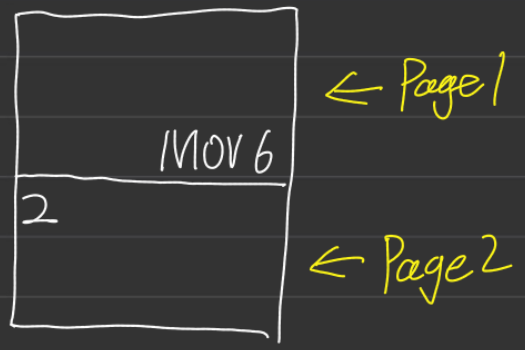 ← Page 1
MOV 6
2
← Page 2